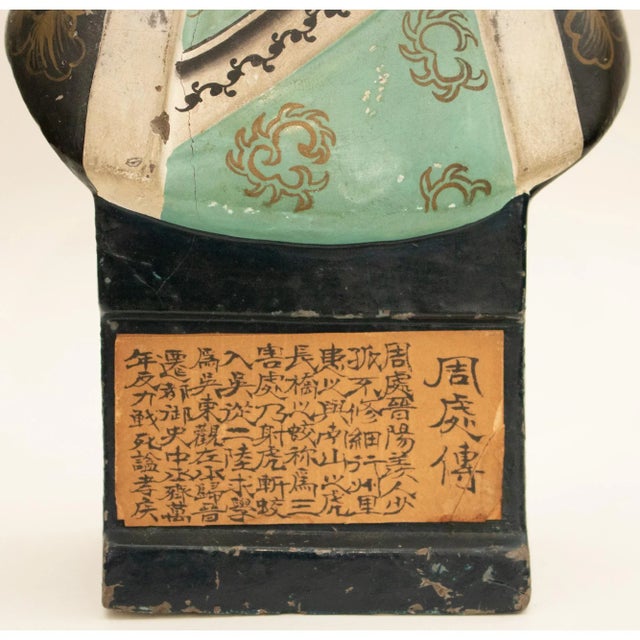 周處傳
周處晉陽羨人少
孤不修細行州里
患之與南山之虎
長橋之蛟称為三
害處乃射虎斬蛟
入吳從二陸求學
為吳東觀左丞歸晉
遷御史中丞齊萬
年反力戰死諡孝侯